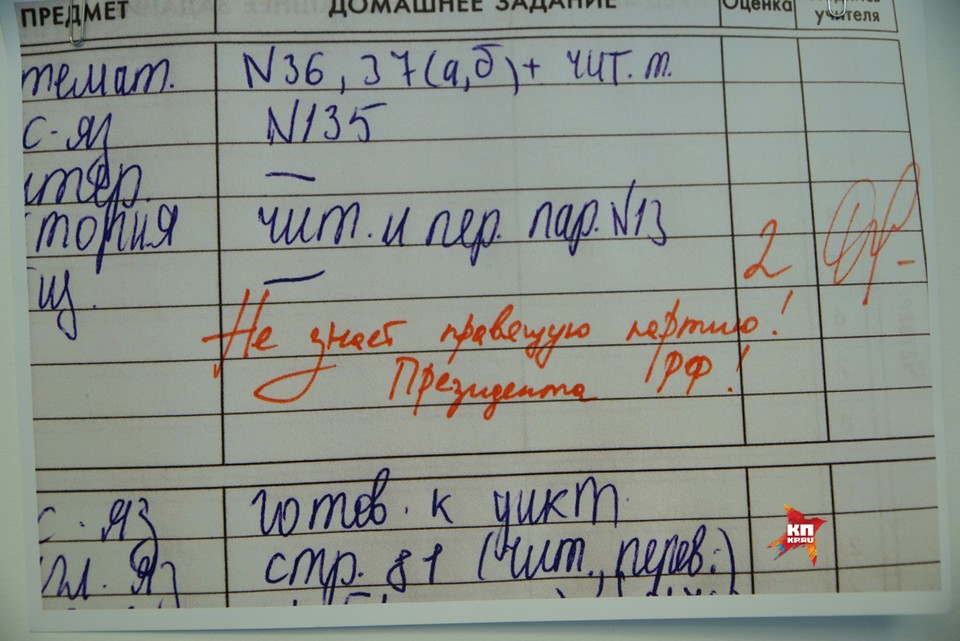 ПРЕДМЕТ ДОМАШНЕЕ ЗАДАНИЕ Оценка учителя
темат. N36, 37(а,б)+ чит. т.
с-яз N135
итер. —
тория чит. и пер. пар. N13
2
—
Не знает правящую партию!
Президента РФ!
с. яз готов. к дикт.
гл. яз стр. 81 (чит., перев.)
КП
KP.RU